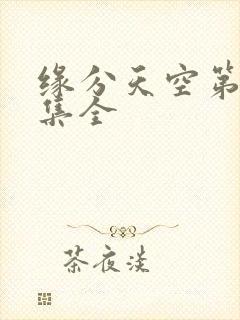 缘分天空第
集全
茶夜淡